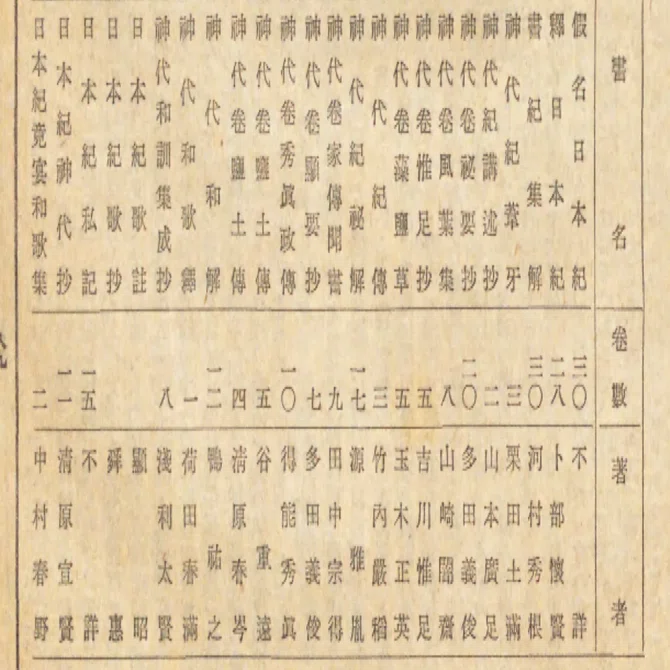 書名 卷數 著者
假名日本紀 三〇 不詳
釋日本紀 二八 卜部懷賢
書紀集解 三〇 河村秀根
神代紀葦牙 三 栗田土滿
神代紀講述抄 二 山本廣足
神代卷祕要抄 二〇 多田義俊
神代卷風葉集 八 山崎闇齋
神代卷惟足抄 五 吉川惟足
神代卷藻鹽草 五 玉木正英
神代紀傳 三 竹內嚴稻
神代紀祕解 一七 源雅胤
神代卷家傳聞書 九 田中宗得
神代卷顯要抄 七 多田義俊
神代卷秀眞政傳 一〇 得能秀眞
神代卷鹽土傳 五 谷重遠
神代卷鹽土傳 四 清原春岑
神代和解 一二 鴨祐之
神代和歌釋 一 荷田春滿
神代和訓集成抄 八 淺利太賢
日本紀歌註 顯昭
日本紀歌抄 舜惠
日本紀私記 一五 不詳
日本紀神代抄 一一 清原宣賢
日本紀竟宴和歌集 二 中村春野